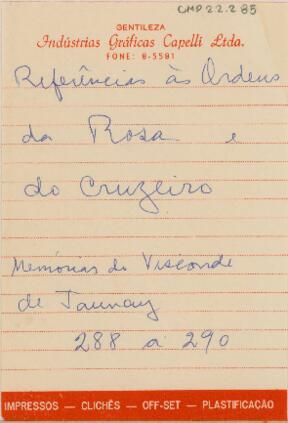 CMP 2.2.2 85
GENTILEZA
Indústrias Gráficas Capelli Ltda.
FONE: 8-5581
Referências às Ordens
da Rosa e
do Cruzeiro
Memórias do Visconde
de Taunay
288 a 290
IMPRESSOS — CLICHÊS — OFF-SET — PLASTIFICAÇÃO